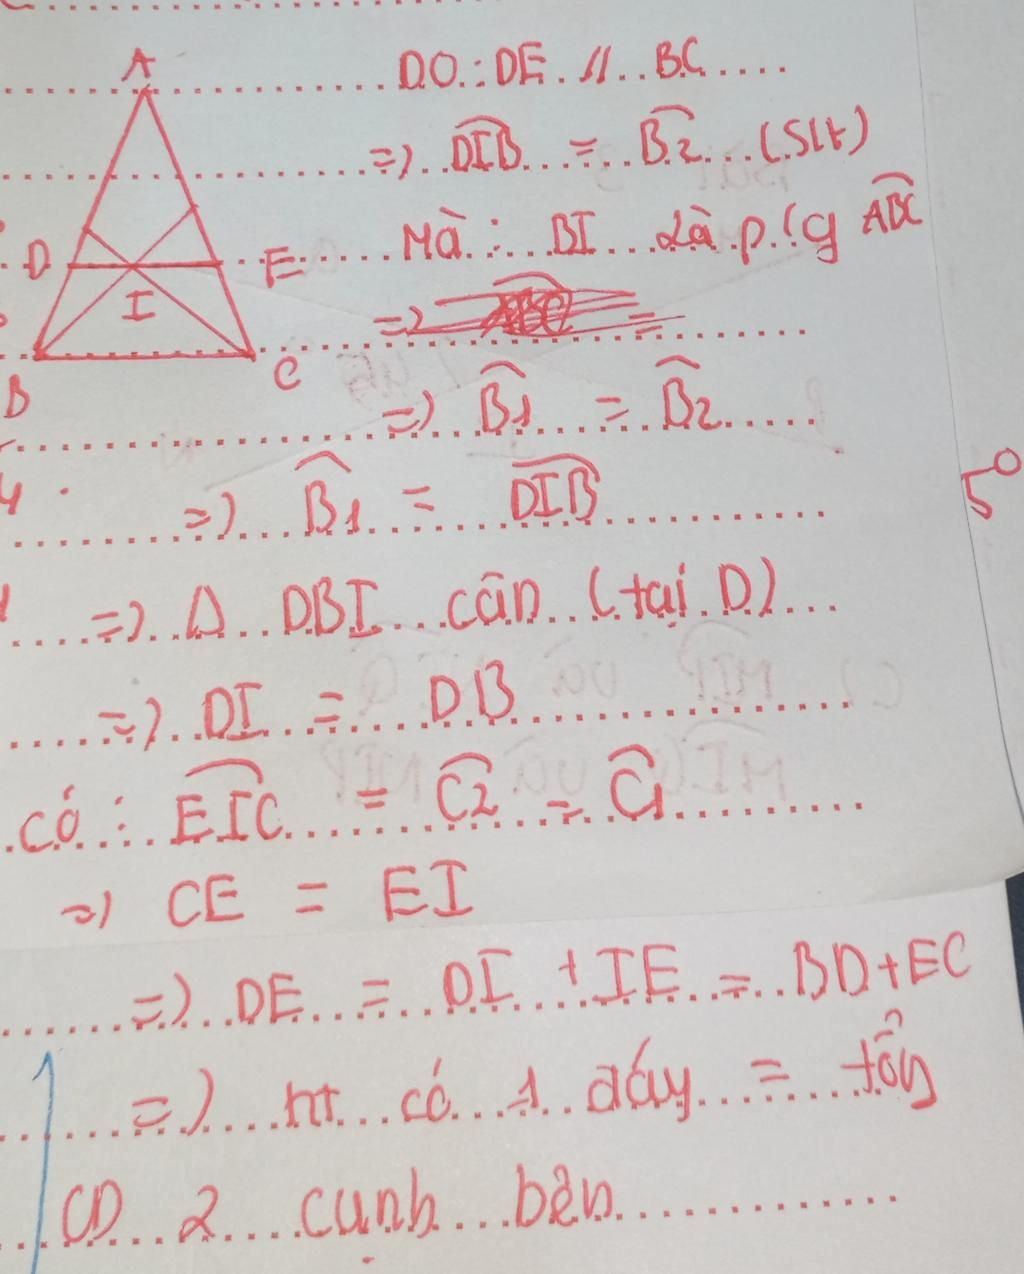 A
DO : DE // BC
=) DIB = B2 (slt)
D
E
Mà : BI là p/g ABC
I
B
C
=) B1 = B2
=) B1 = DIB
5°
=) Δ DBI cân (tại D)
=) DI = DB
có : EIC = C2 = C1
=) CE = EI
=) DE = DI + IE = BD+EC
=) ht có 1 dáy = tổng
CD 2 cạnh bên